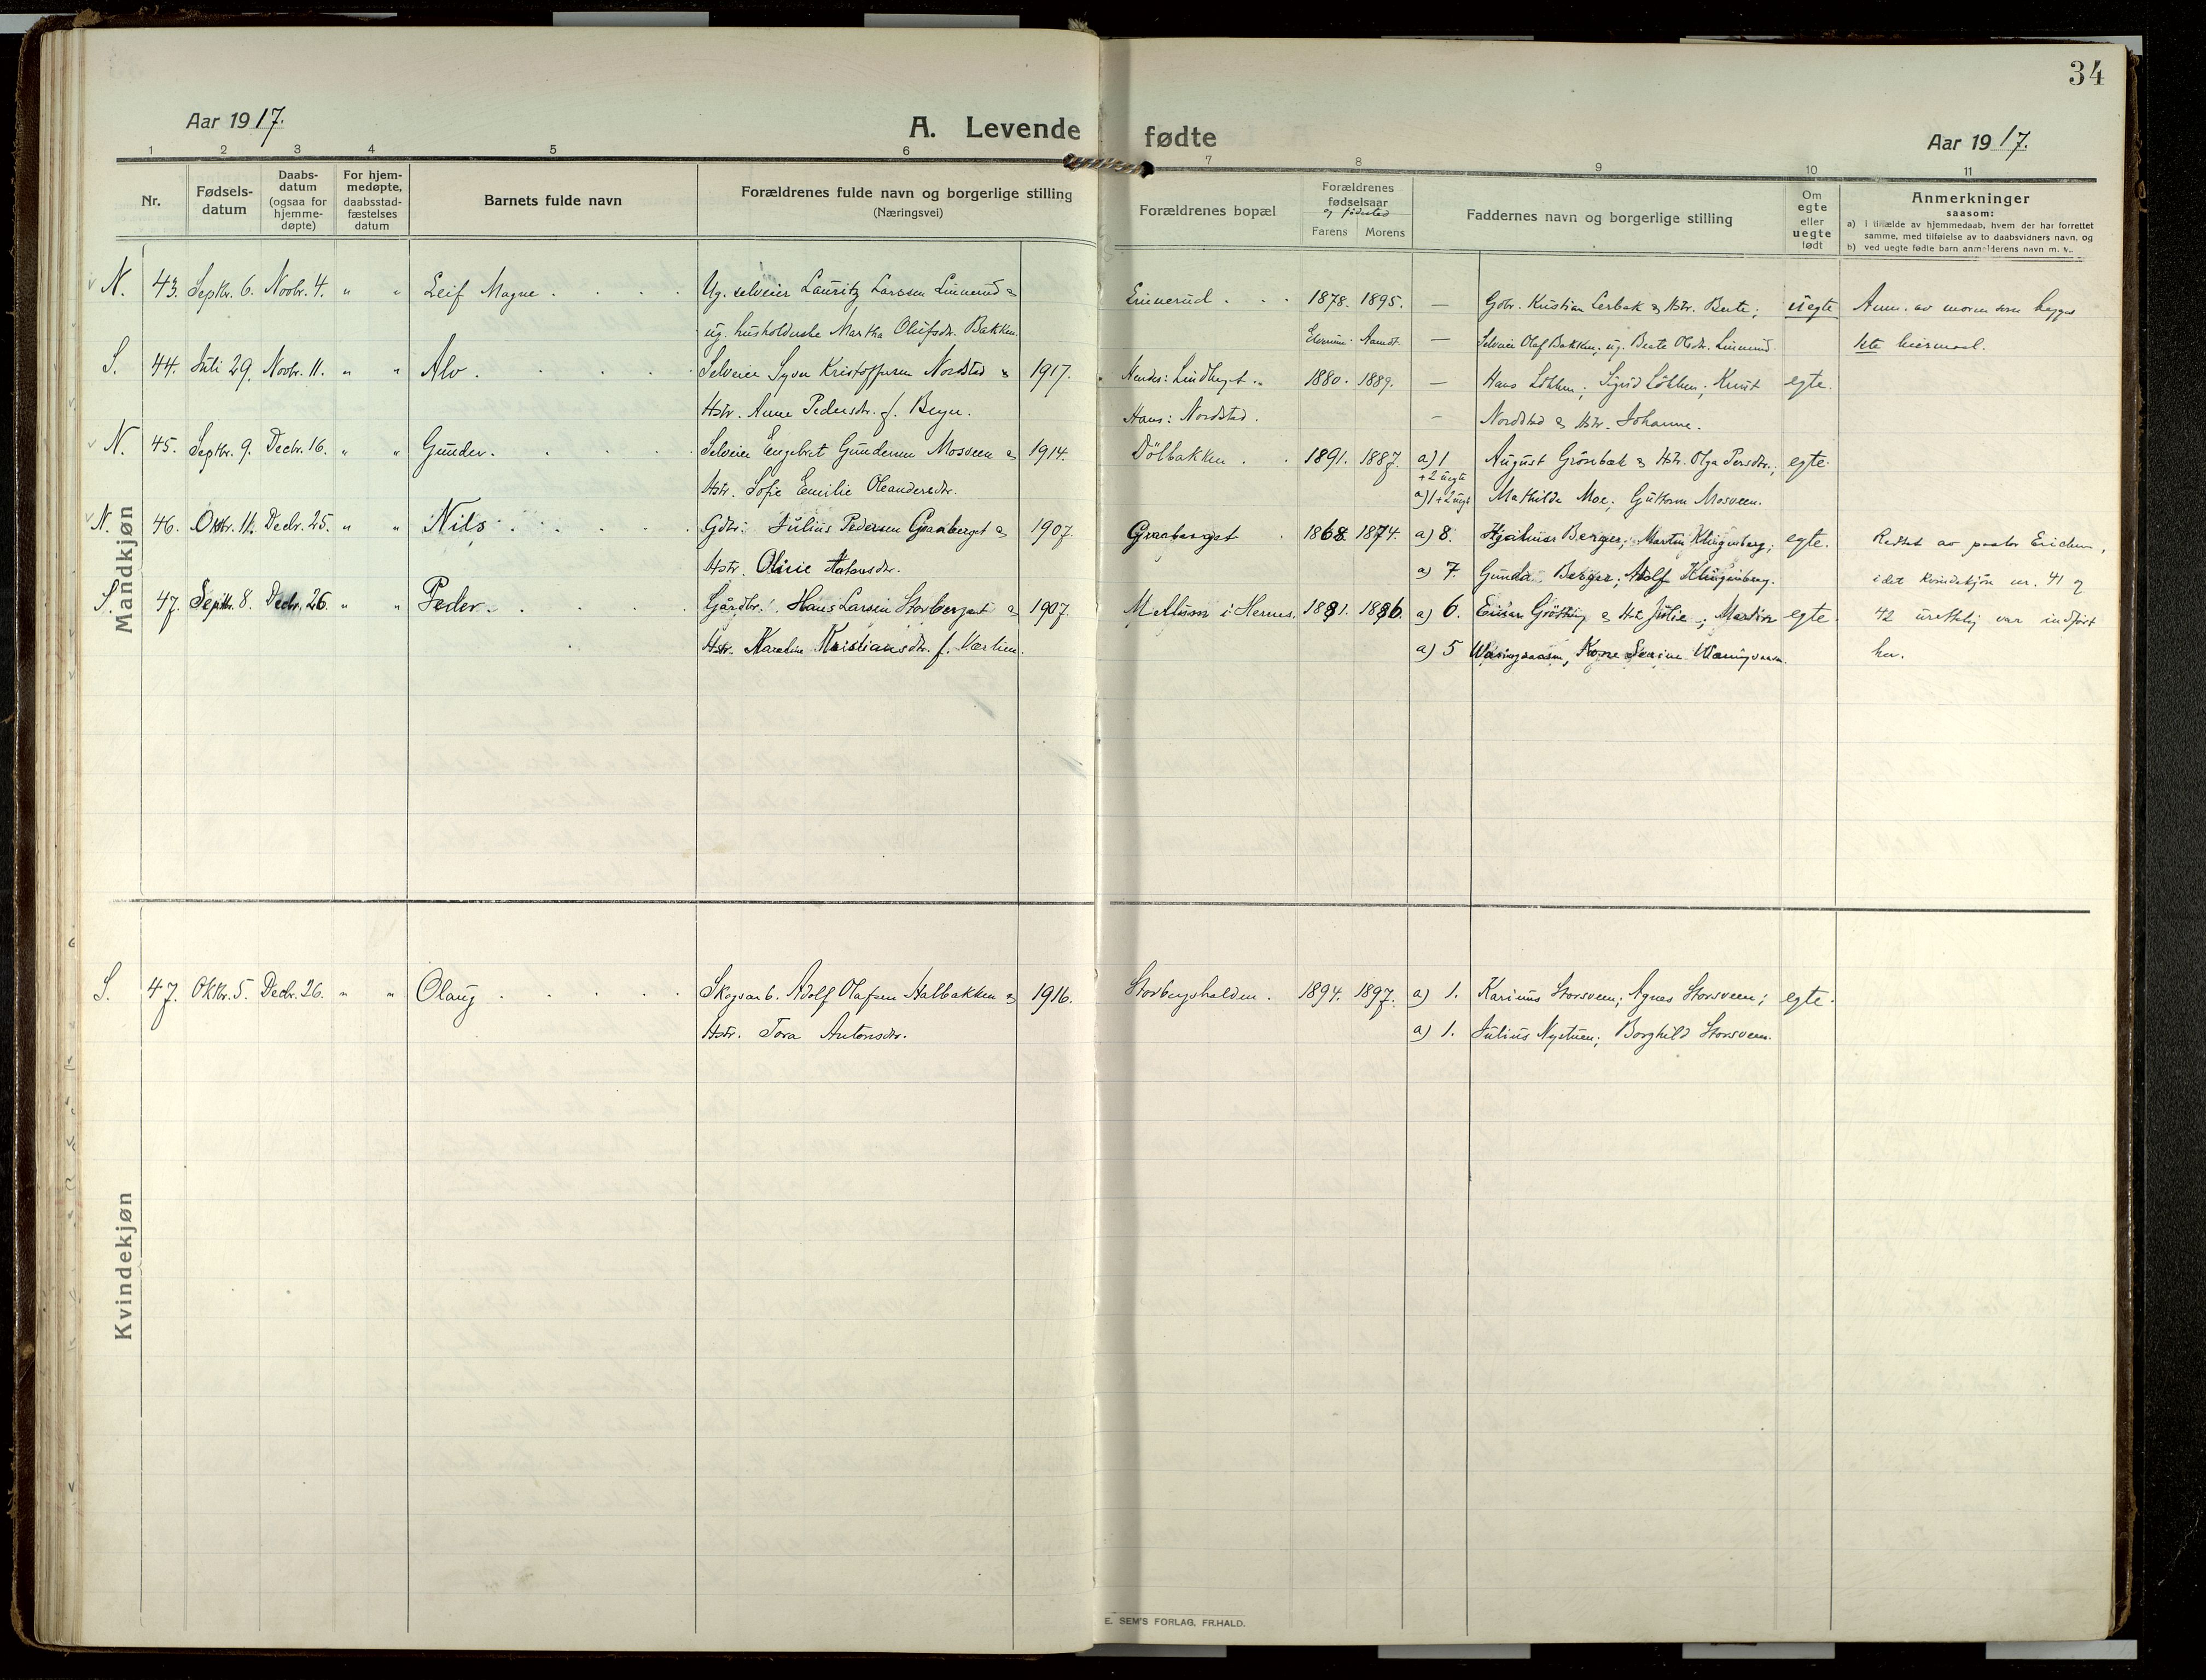 34
Aar 1917.
A. Levende fødte
Aar 1917.
1 2 3 4 5 6 7 8 9 10 11
Nr.
Fødsels-
datum
Daabs-
datum
(ogsaa for
hjemme-
døpte)
For hjem-
medøpte,
daabsstad-
fæstelses
datum
Barnets fulde navn
Forældrenes fulde navn og borgerlige stilling
(Næringsvei)
Forældrenes bopæl
Forældrenes
fødselsaar
og fødested
Farens Morens
Faddernes navn og borgerlige stilling
Om
egte
eller
uegte
født
Anmerkninger
saasom:
a) i tilfælde av hjemmedaab, hvem der har forrettet
samme, med tilføielse av to daabsvidners navn, og
b) ved uegte fødte barn anmelderens navn m. v.
Mandkjøn
N. 43. Septbr. 6. Novbr. 4. " " Leif Magne . . . . Ug. selveier Lauritz Larsen Linnerud & Linnerud . . . 1878. 1895. — Gdbr. Kristian Lerbak & Hstr. Berte; uegte Anm. av moren som begges
ug. husholderske Martha Olufsdr. Bakken. Elverum Aamot — Selveier Olaf Bakken; ug. Beate Olsdr. Linnerud. 1ste leiermaal.
S. 44. Juli 29. Novbr. 11. " " Alv . . . . . Selveier Syver Kristoffersen Nordstad & 1917. Hendes: Lindhaget .. 1880. 1889. — Hans Løkken; Sigrid Løkken; Knut egte.
Hstr. Anne Pedersdr. f. Berger. Hans: Nordstad. — Nordstad & Hstr. Johanne.
N. 45. Septbr. 9. Decbr. 16. " " Gunder. . . . . Selveier Engebret Gundersen Mosveen & 1914. Dölbakken . . 1891. 1887. a) 1 August Grönbæk & Hstr. Olga Persdtr.; egte.
+ 2 uegte
Hstr. Sofie Emilie Oleandersdr. a) 1 + 2 uegt Mathilde Moe; Guttorm Mosveen.
N. 46. Oktbr. 11. Decbr. 25. " " Nils . . . . . Gdbr. Julius Pedersen Graaberget & 1907. Graaberget . 1868. 1874. a) 8. Hjalmar Berger; Martin Klingenberg; egte. Rettet av pastor Erichsen,
Hstr. Olivie Antonsdr. a) 7. Gunda Berger; Adolf Klingenberg. idet kvindekjøn nr. 41 og
S. 47. Septbr. 8. Decbr. 26. " " Peder . . . . . Gårdbr. Hans Larsen Storberget & 1907. Mellum i Hernes. 1881. 1886. a) 6. Einar Grötting & Hst Julie; Martin egte. 42 urettelig var indført
Hstr. Karoline Kristiansdr. f. Værlien. a) 5 Wæringsaasen, Kone Serine Wæringsaasen. her.
Kvindekjøn
S. 47. Oktbr. 5. Decbr. 26. " " Olaug . . . . . Skogsarb. Adolf Olafsen Halbakken & 1916. Storbergshalden . 1894. 1897. a) 1. Karinus Storsveen; Agnes Storsveen; egte.
Hstr. Tora Antonsdr. a) 1. Julius Nystuen; Borghild Storsveen.
E. SEM'S FORLAG, FR.HALD.